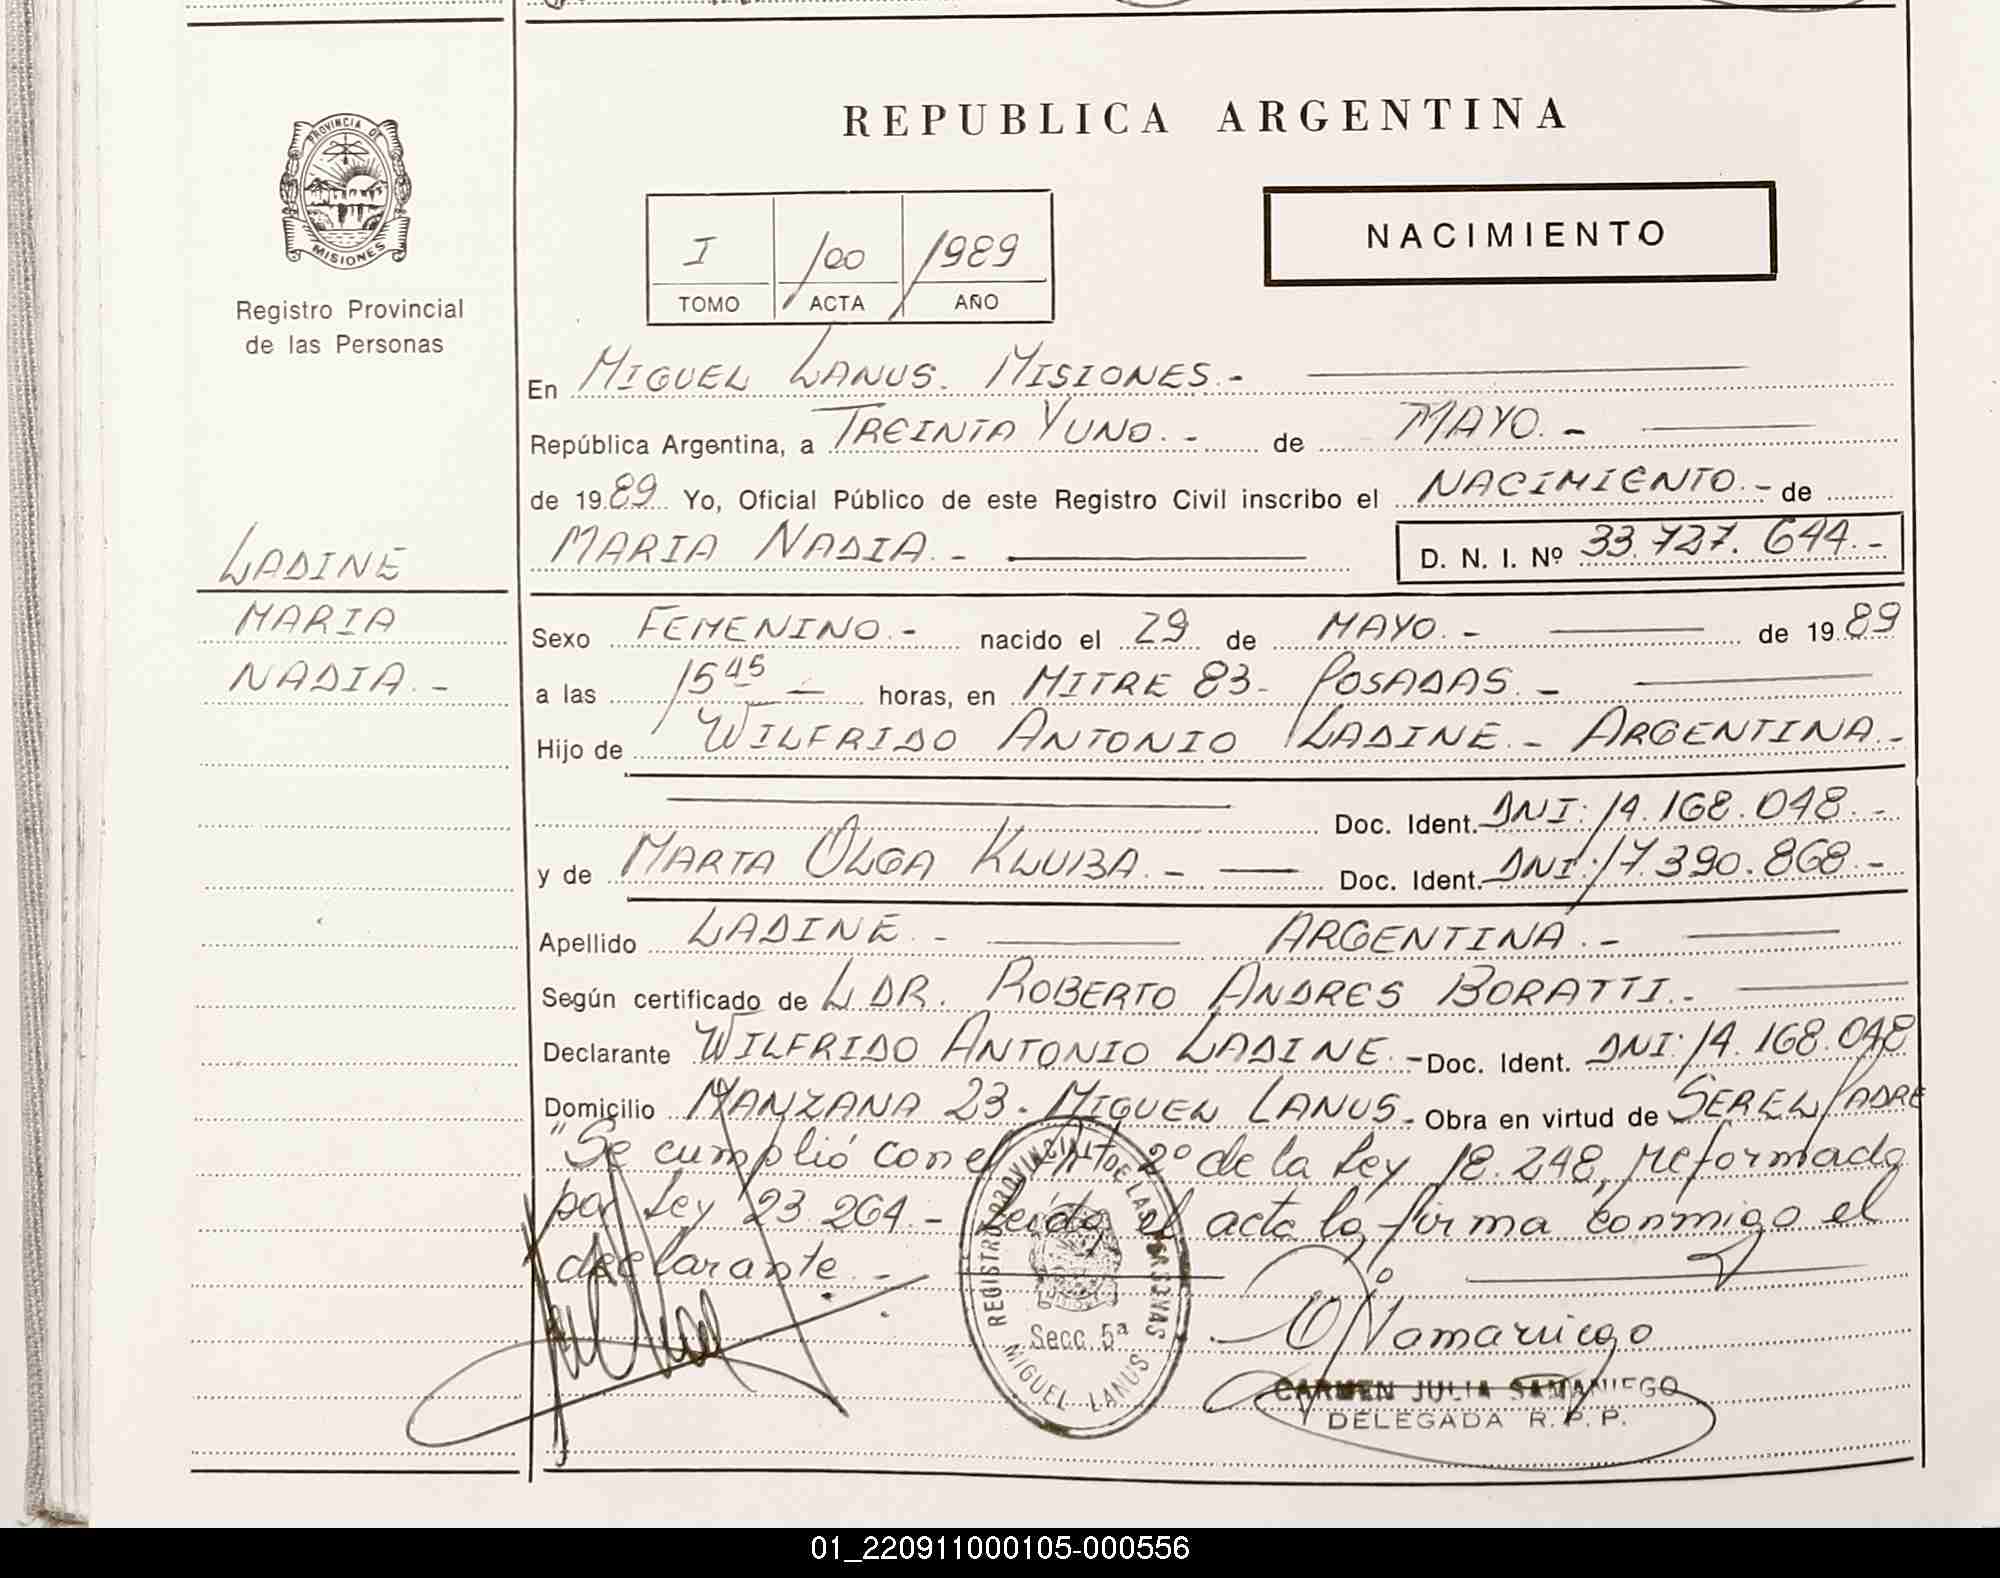 REPUBLICA ARGENTINA
PROVINCIA DE
MISIONES
Registro Provincial
de las Personas
I /00 /1989
TOMO ACTA AÑO
NACIMIENTO
En MIGUEL LANUS. MISIONES.-
República Argentina, a TREINTA Y UNO.- de MAYO.-
de 1989 Yo, Oficial Público de este Registro Civil inscribo el NACIMIENTO.- de
MARIA NADIA.- D. N. I. Nº 33.727.644.-
LADINE
MARIA
NADIA.-
Sexo FEMENINO.- nacido el 29 de MAYO.- de 1989
a las 15 45 horas, en MITRE 83- POSADAS.-
Hijo de WILFRIDO ANTONIO LADINE.- ARGENTINA.-
Doc. Ident. DNI: 14.168.048.-
y de MARTA OLGA KLUBA.- Doc. Ident. DNI: 17.390.868.-
Apellido LADINE.- ARGENTINA.-
Según certificado de L DR. ROBERTO ANDRES BORATTI.-
Declarante WILFRIDO ANTONIO LADINE.- Doc. Ident. DNI: 14.168.048
Domicilio MANZANA 23. MIGUEL LANUS.- Obra en virtud de SER EL PADRE
"Se cumplió con el Art 2º de la Ley 18.248, reformada
por Ley 23.264.- Leída el acta la firma conmigo el
declarante.-
REGISTRO PROVINCIAL DE LAS PERSONAS
Secc. 5ª
MIGUEL LANUS
CARMEN JULIA SAMANIEGO
DELEGADA R. P. P.
01_220911000105-000556